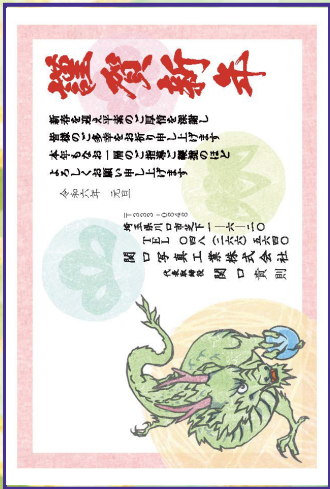 謹賀新年
新春を迎え平素のご厚情を感謝し
皆様のご多幸をお祈り申し上げます
本年もなお一層のご指導ご鞭撻のほど
よろしくお願い申し上げます
令和六年　元旦
埼玉県川口市芝下一ー六ー二〇
TEL 〇四八(二六六)五六四〇
関口写真工業株式会社
代表取締役　関口貴則